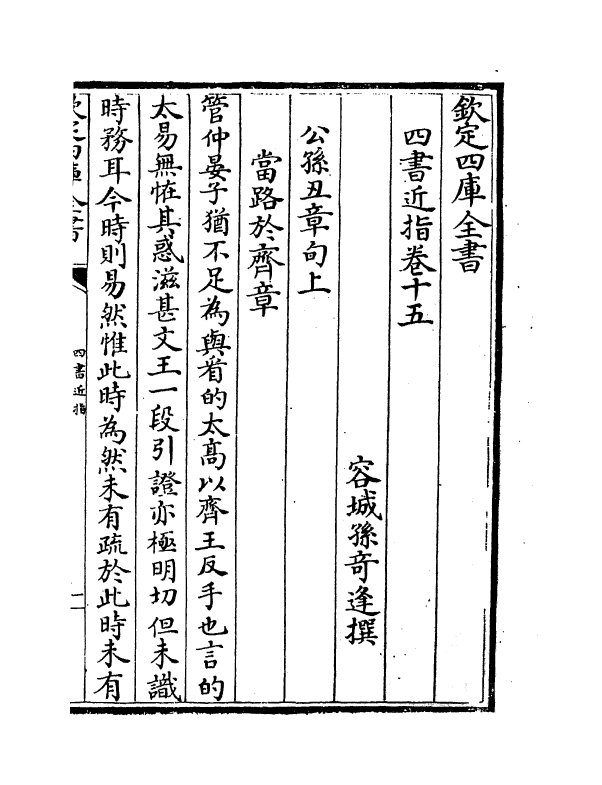 欽定四庫全書
四書近指卷十五
容城孫竒逢撰
公孫丑章句上
當路於齊章
管仲晏子猶不足為與㸔的太髙以齊王反手也言的
太易無怪其惑滋甚文王一段引證亦極明切但未識
時務耳今時則易然惟此時為然未有疏於此時未有
欽定四庫全書
四書近指